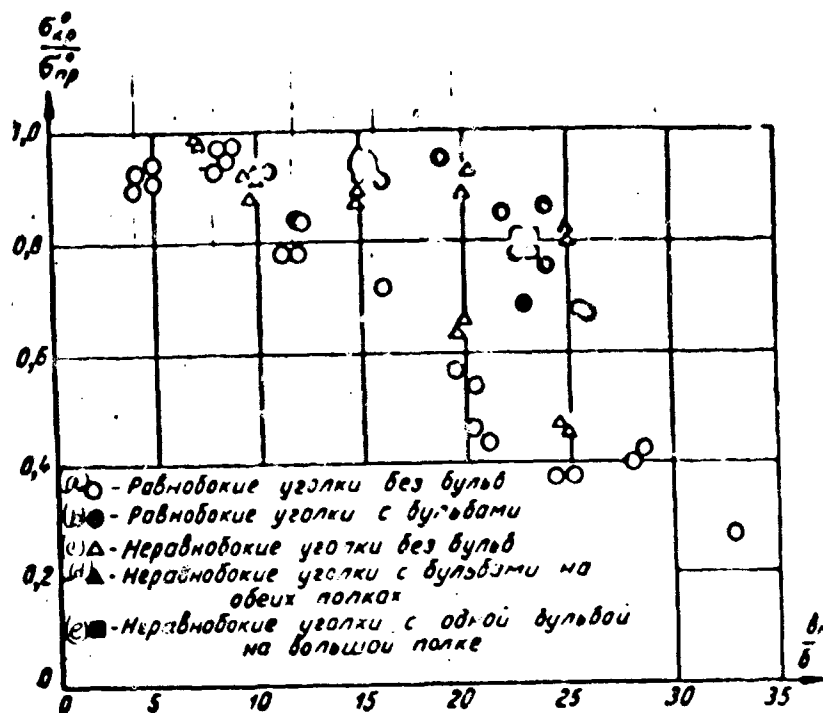 σ°кр
σ°пр
1,0
0,8
0,6
0,4
(a) ○ - Равнобокие уголки без бульб
(b) ● - Равнобокие уголки с бульбами
(c) △ - Неравнобокие уголки без бульб
(d) ▲ - Неравнобокие уголки с бульбами на
обеих полках
(e) ■ - Неравнобокие уголки с одной бульбой
на большой полке
0,2
0
0 5 10 15 20 25 30 35